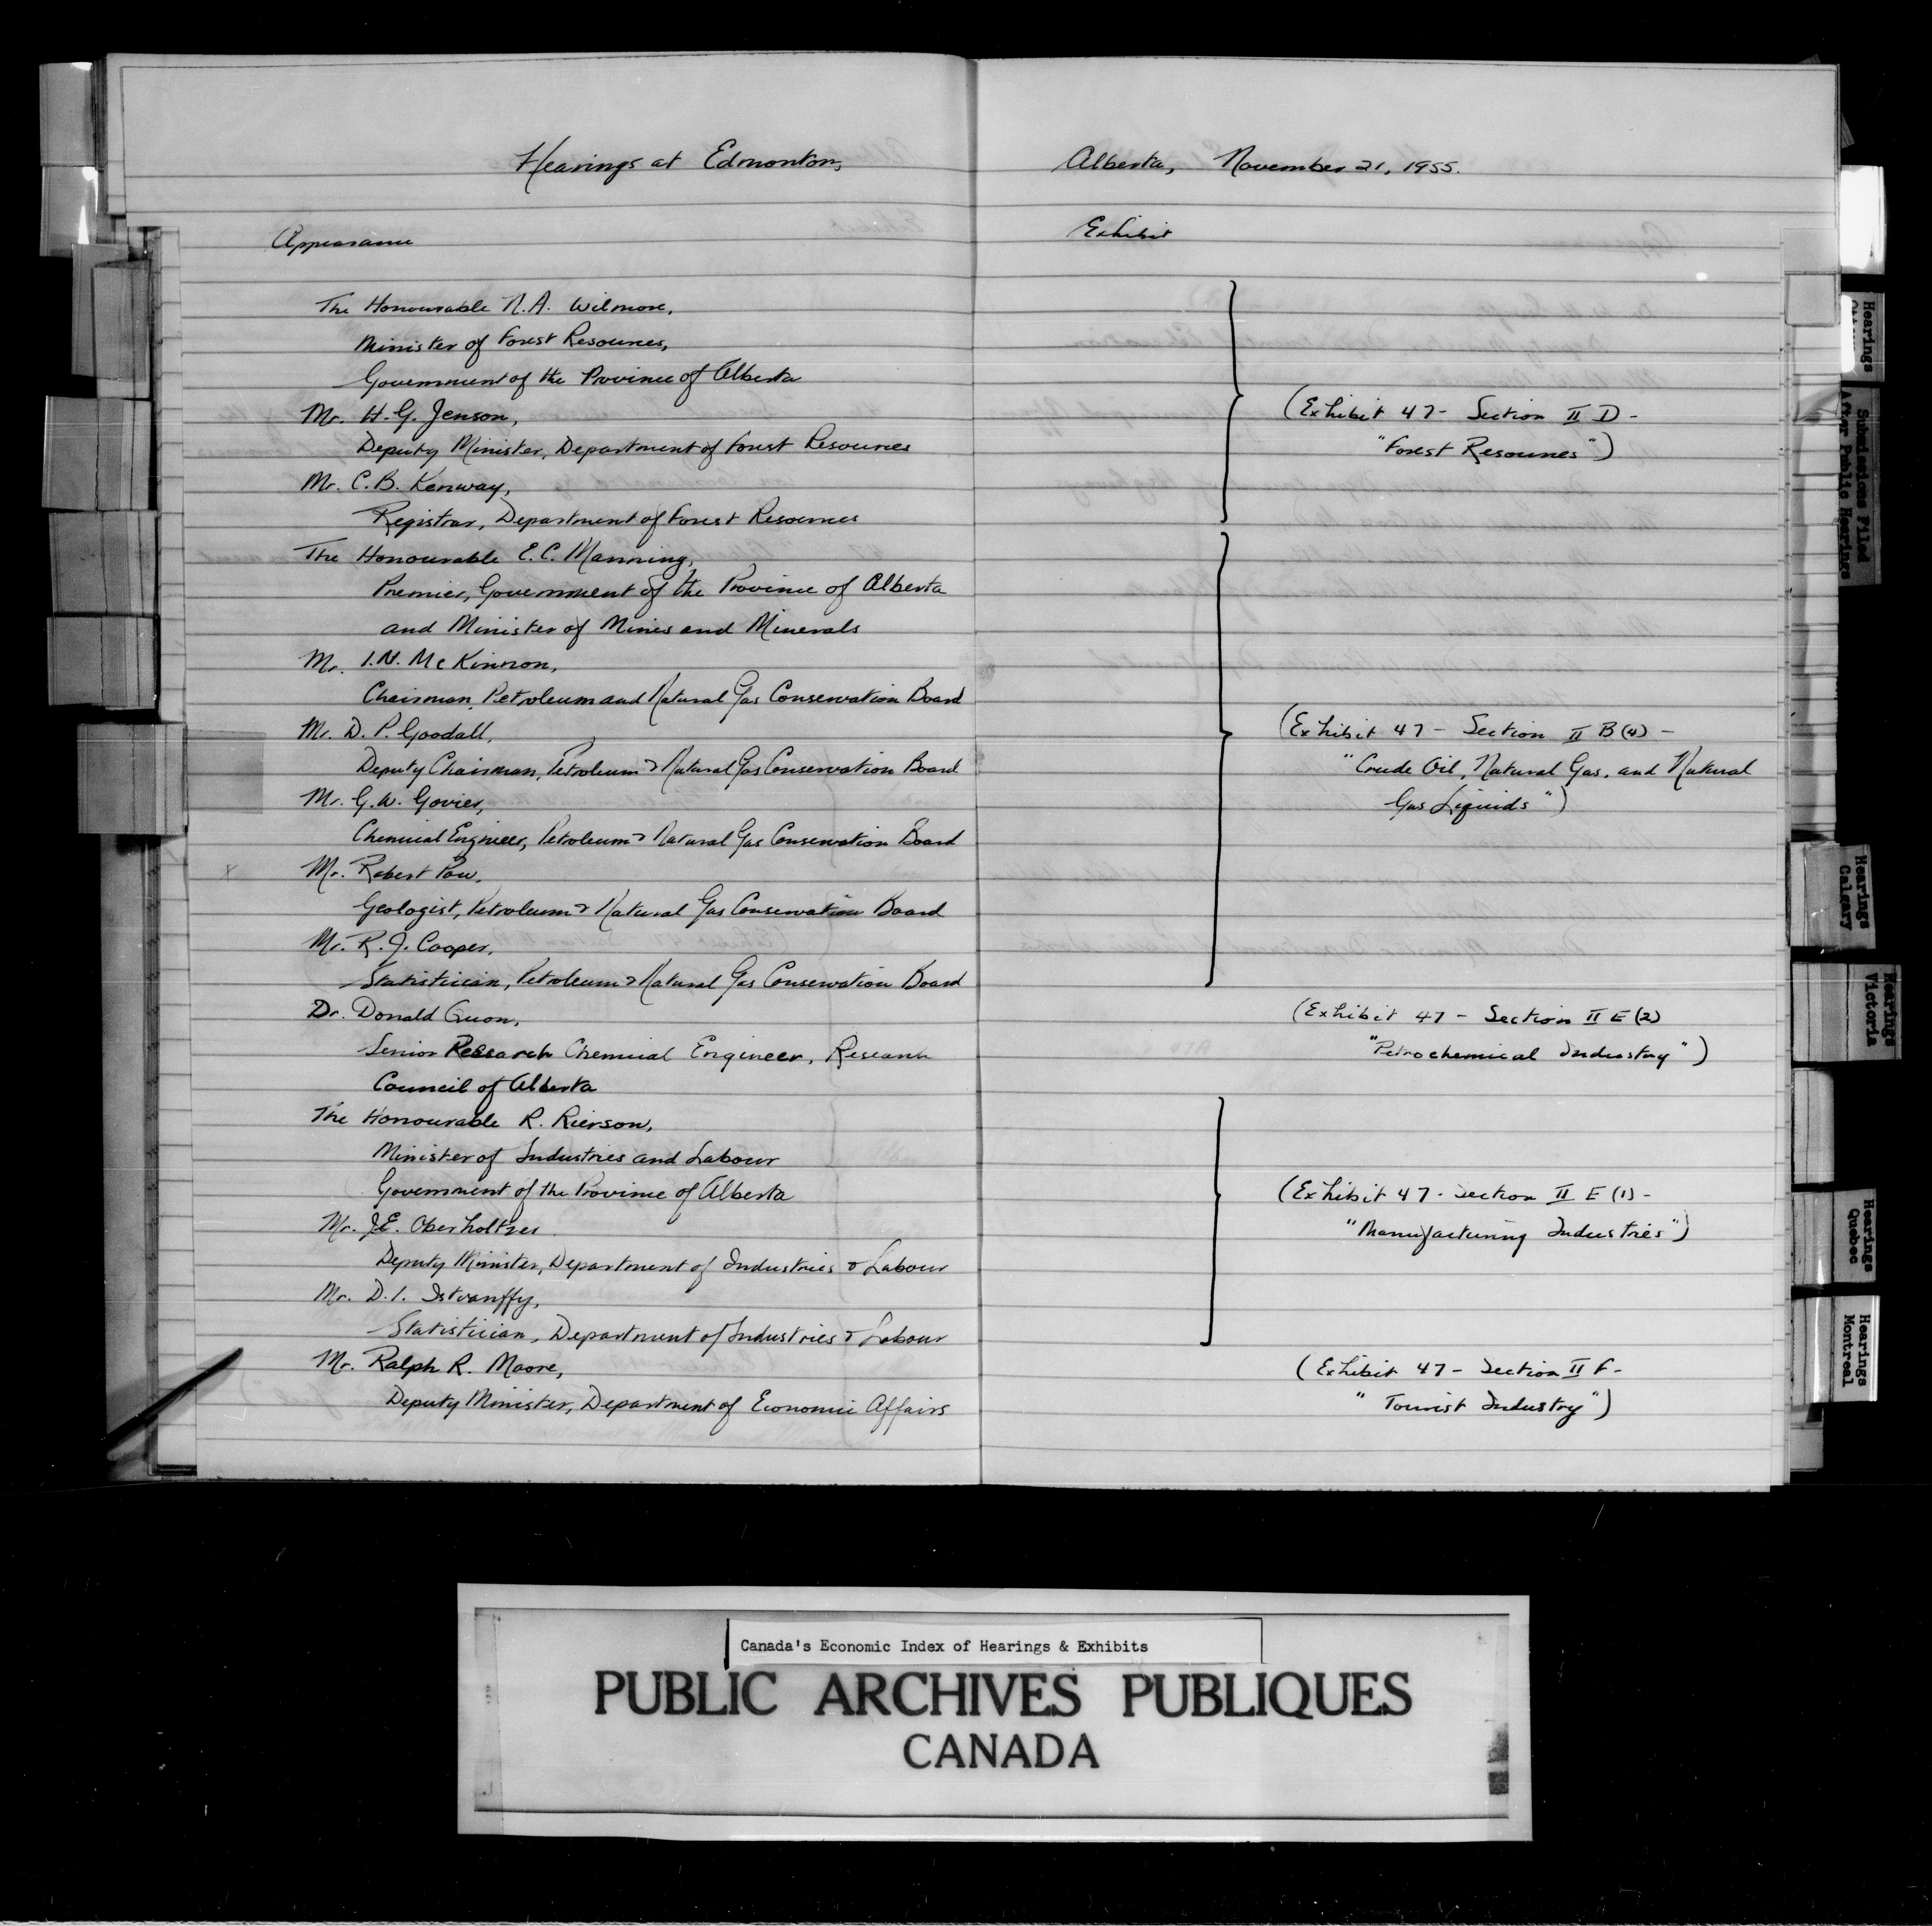 Hearings at Edmonton, Alberta, November 21, 1955.
Appearance
Exhibit
The Honourable N.A. Wilmore,
Minister of Forest Resources,
Government of the Province of Alberta
Mr. H.G. Jenson,
Deputy Minister, Department of Forest Resources
Mr. C.B. Kenway,
Registrar, Department of Forest Resources
(Exhibit 47 - Section II D -
"Forest Resources")
The Honourable E.C. Manning,
Premier, Government of the Province of Alberta
and Minister of Mines and Minerals
Mr. I.N. McKinnon,
Chairman, Petroleum and Natural Gas Conservation Board
Mr. D.P. Goodall,
Deputy Chairman, Petroleum & Natural Gas Conservation Board
Mr. G.W. Govier,
Chemical Engineer, Petroleum & Natural Gas Conservation Board
Mr. Robert Pow,
Geologist, Petroleum & Natural Gas Conservation Board
Mr. R.J. Cooper,
Statistician, Petroleum & Natural Gas Conservation Board
(Exhibit 47 - Section II B(4) -
"Crude Oil, Natural Gas, and Natural
Gas Liquids")
Dr. Donald Quon,
Senior Research Chemical Engineer, Research
Council of Alberta
(Exhibit 47 - Section II E(2)
"Petrochemical Industry")
The Honourable R. Rierson,
Minister of Industries and Labour
Government of the Province of Alberta
Mr. J.E. Oberholtzer
Deputy Minister, Department of Industries & Labour
Mr. D.I. Istvanffy,
Statistician, Department of Industries & Labour
(Exhibit 47 - Section II E(1) -
"Manufacturing Industries")
Mr. Ralph R. Moore,
Deputy Minister, Department of Economic Affairs
(Exhibit 47 - Section II F -
"Tourist Industry")
Hearings
Submissions Filed
After Public Hearings
Hearings
Calgary
Hearings
Victoria
Hearings
Quebec
Hearings
Montreal
Canada's Economic Index of Hearings & Exhibits
PUBLIC ARCHIVES PUBLIQUES
CANADA